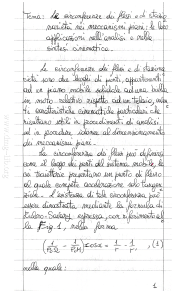 Tema: Le circonferenze dei flessi e di stazio-
narietà nei meccanismi piani: le loro
applicazioni nell'analisi e nella
sintesi cinematica.
Le circonferenze dei flessi e di stazione
rietà sono due luoghi di punti, appartenenti
ad un piano mobile solidale ad una biella
in moto relativo rispetto ad un telaio, aven
ti caratteristiche cinematiche particolari che
risultano utili ai procedimenti di analisi,
ed in particolare, idonee al dimensionamento
dei meccanismi piani.
La circonferenza dei flessi può definirsi
come il luogo dei punti del sistema mobile, le
cui traiettorie presentano un punto di flesso
al quale compete accelerazione solo tangen
ziale. L'esistenza di tale circonferenza può
essere dimostrata mediante la formula di
Eulero-Savary espressa, con riferimento al
la Fig. 1, nella forma
cos α = , (1)
nella quale:
1